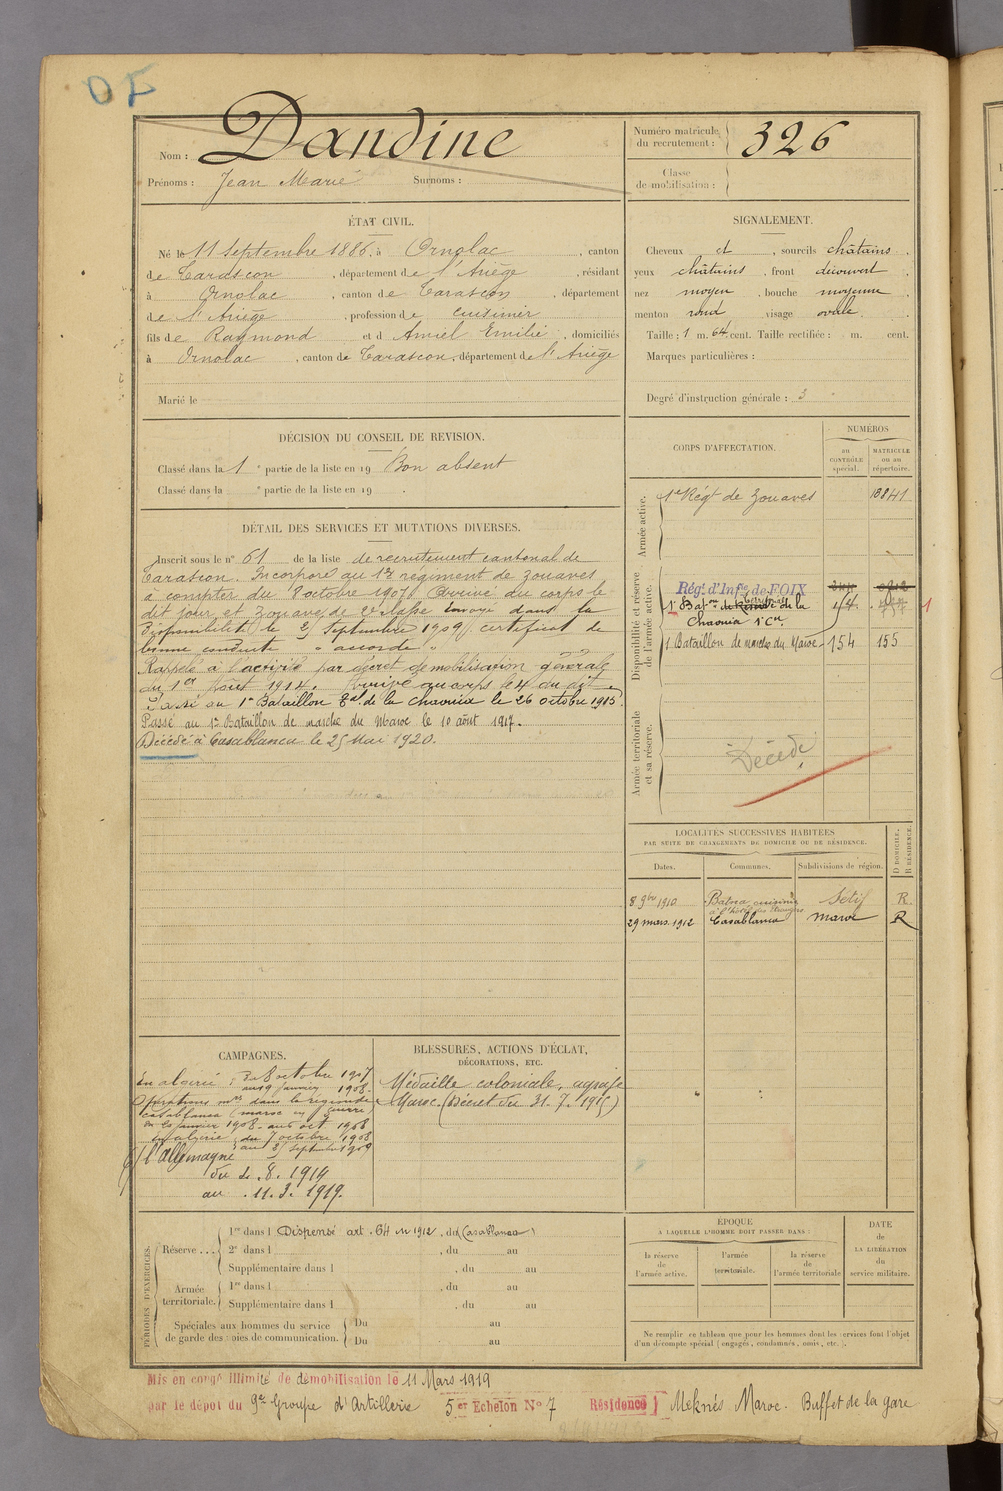 Nom : Dandine
Prénoms : Jean Marie Surnoms :
Numéro matricule du recrutement : 326
Classe de mobilisation :
ÉTAT CIVIL.
Né le 11 Septembre 1886. à Ornolac, canton
de Tarascon, département de l'Ariège, résidant
à Ornolac, canton de Tarascon, département
de l'Ariège, profession de cuisinier
fils de Raymond et d Amiel Emilie, domiciliés
à Ornolac, canton de Tarascon, département de l'Ariège
Marié le
SIGNALEMENT.
Cheveux et, sourcils châtains
yeux châtains, front découvert
nez moyen, bouche moyenne
menton rond visage ovale
Taille : 1 m. 64 cent. Taille rectifiée : m. cent.
Marques particulières :
Degré d'instruction générale : 3
DÉCISION DU CONSEIL DE REVISION.
Classé dans la 1e partie de la liste en 19 Bon absent
Classé dans la e partie de la liste en 19 .
DÉTAIL DES SERVICES ET MUTATIONS DIVERSES.
Inscrit sous le n° 61 de la liste de recrutement cantonal de
Tarascon. Incorporé au 1er régiment de zouaves
à compter du 8 octobre 1907. Arrivé au corps le
dit jour et zouave de 2e classe. Envoyé dans la
disponibilité le Septembre 1909, certificat de
bonne conduite " accordé "
Rappelé à l'activité par décret de mobilisation générale
du 1er Août 1914. Arrivé au corps le 4 du dit.
Passé au 1er Bataillon Tal de la Chaouia le 26 octobre 1915.
Passé au 1er Bataillon de marche du Maroc le 10 août 1917.
Décédé à Casablanca le 25 Mai 1920.
CORPS D'AFFECTATION.
NUMÉROS
au CONTRÔLE spécial.
MATRICULE ou au répertoire.
Armée active.
1er Régt de Zouaves 13841
Disponibilité et réserve de l'armée active.
Régt d'Infie de FOIX
1er Baton territorial de la
Chaouia 1e Cie
1 Bataillon de marche du Maroc 154 155
Armée territoriale et sa réserve.
Décédé
LOCALITÉS SUCCESSIVES HABITÉES
PAR SUITE DE CHANGEMENTS DE DOMICILE OU DE RÉSIDENCE.
Dates. Communes. Subdivisions de région. D DOMICILE. R RÉSIDENCE.
8 9bre 1910 Batna cuisinier Sétif R.
à l'hôtel des Etrangers
29 mars 1912 Casablanca Maroc R
CAMPAGNES.
En algérie : Du 8 octobre 1907
au 9 janvier 1908.
Opérations mres dans la région de
Casablanca (maroc en guerre)
du 10 janvier 1908 - au 6 oct 1908
En algérie du 7 octobre 1908
au septembre 1909
C/ l'Allemagne
du 2. 8. 1914
au 11. 3. 1919.
BLESSURES, ACTIONS D'ÉCLAT,
DÉCORATIONS, ETC.
Médaille coloniale, agrafe
Maroc. (Décret du 31. 7. 1915)
PÉRIODES D'EXERCICES.
Réserve ...
1re dans l Dispensé art. 64 en 1912, du (Casablanca)
2e dans l , du au
Supplémentaire dans l , du au
Armée territoriale.
1re dans l , du au
Supplémentaire dans l , du au
Spéciales aux hommes du service de garde des voies de communication.
Du au
Du au
ÉPOQUE
À LAQUELLE L'HOMME DOIT PASSER DANS :
la réserve de l'armée active.
l'armée territoriale.
la réserve de l'armée territoriale
DATE DE LA LIBÉRATION du service militaire.
Ne remplir ce tableau que pour les hommes dont les services font l'objet
d'un décompte spécial (engagés, condamnés, omis, etc.).
Mis en congé illimité de démobilisation le 11 Mars 1919
par le dépôt du 9e Groupe d'Artillerie 5er Echelon N° 7 Résidence } Meknés Maroc. Buffet de la gare